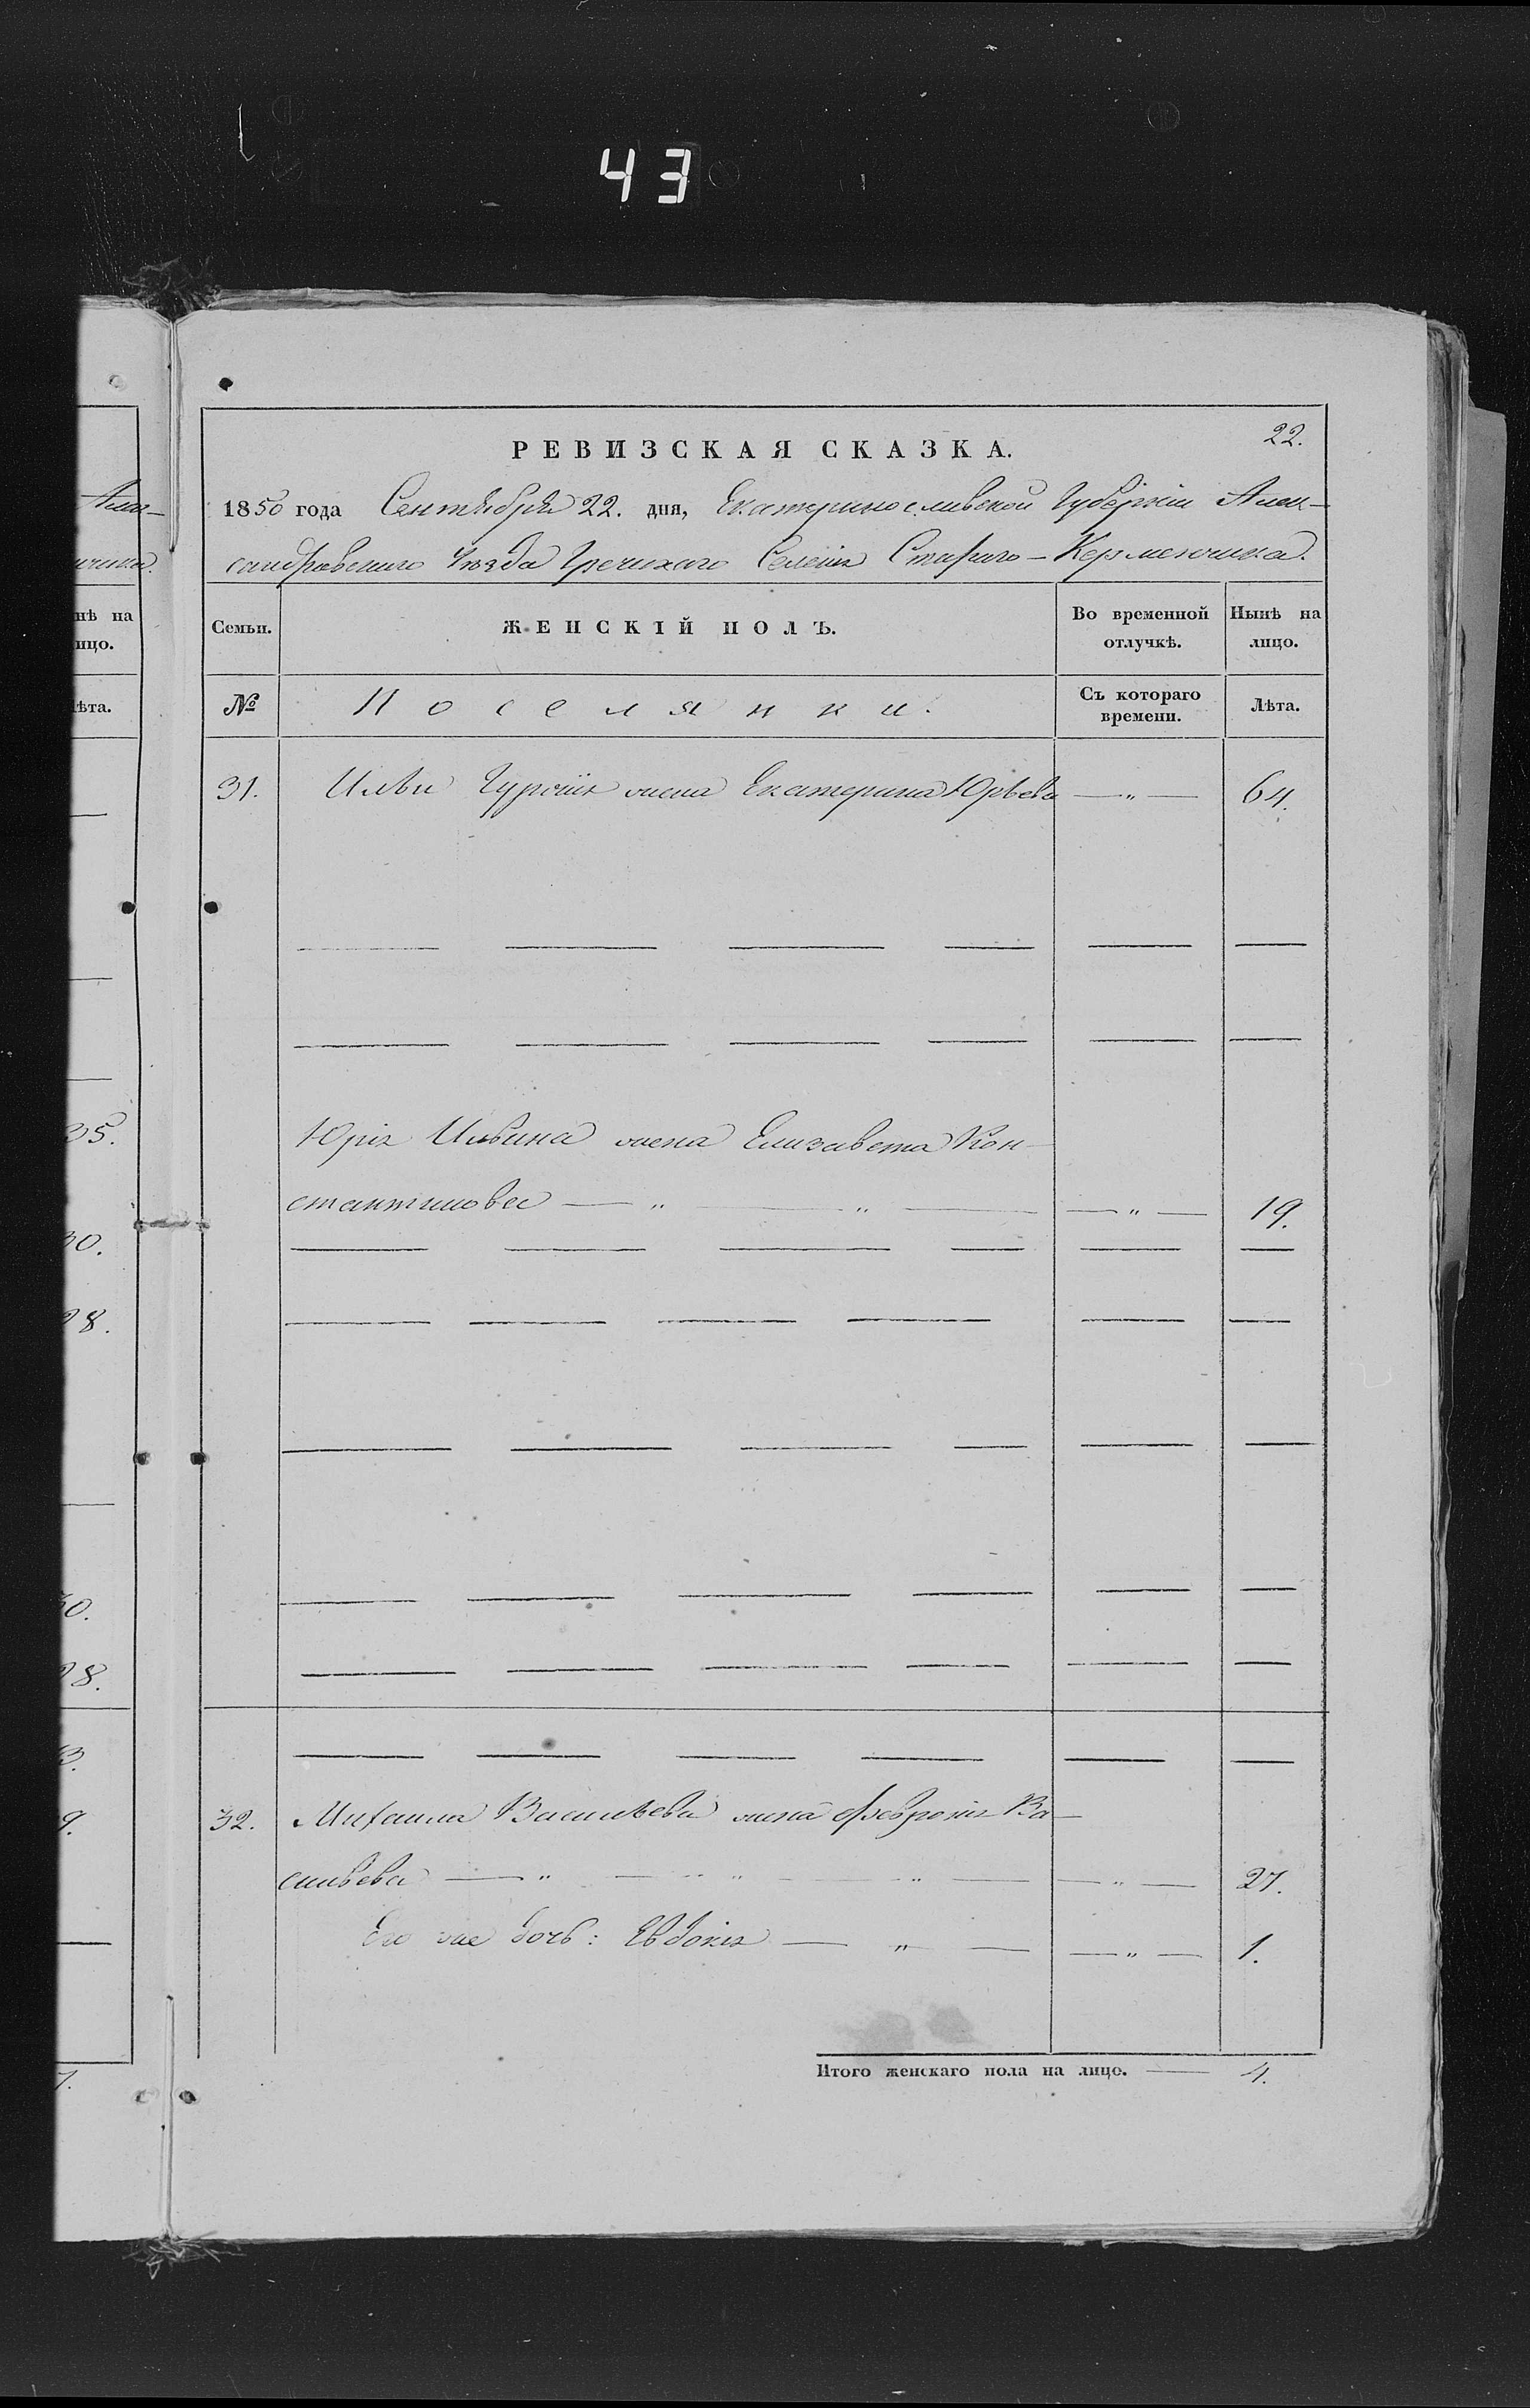 43
22.
РЕВИЗСКАЯ СКАЗКА.
1850 года Сентября 22. дня, Екатеринославской Губерніи Алек-
сандровского Уезда Греческаго Селенія Стараго-Керменчика.
Семьи.
ЖЕНСКІЙ ПОЛЪ.
Во временной отлучкѣ.
Нынѣ на лицо.
№
Поселянки.
Съ котораго времени.
Лѣта.
31. Ильи жена Екатерина Юрьева — „ — 64.
Юрія Ильина жена Елизавета Кон-
стантинова — „ — „ — — „ — 19.
32. Михаила Васильева жена Февронія Ва-
сильева — „ — „ — „ — — „ — 27.
Его же дочь: Евдокія — „ — — „ — 1.
Итого женскаго пола на лицо. — 4.
нѣ на
ицо.
ѣта.
35.
30.
28.